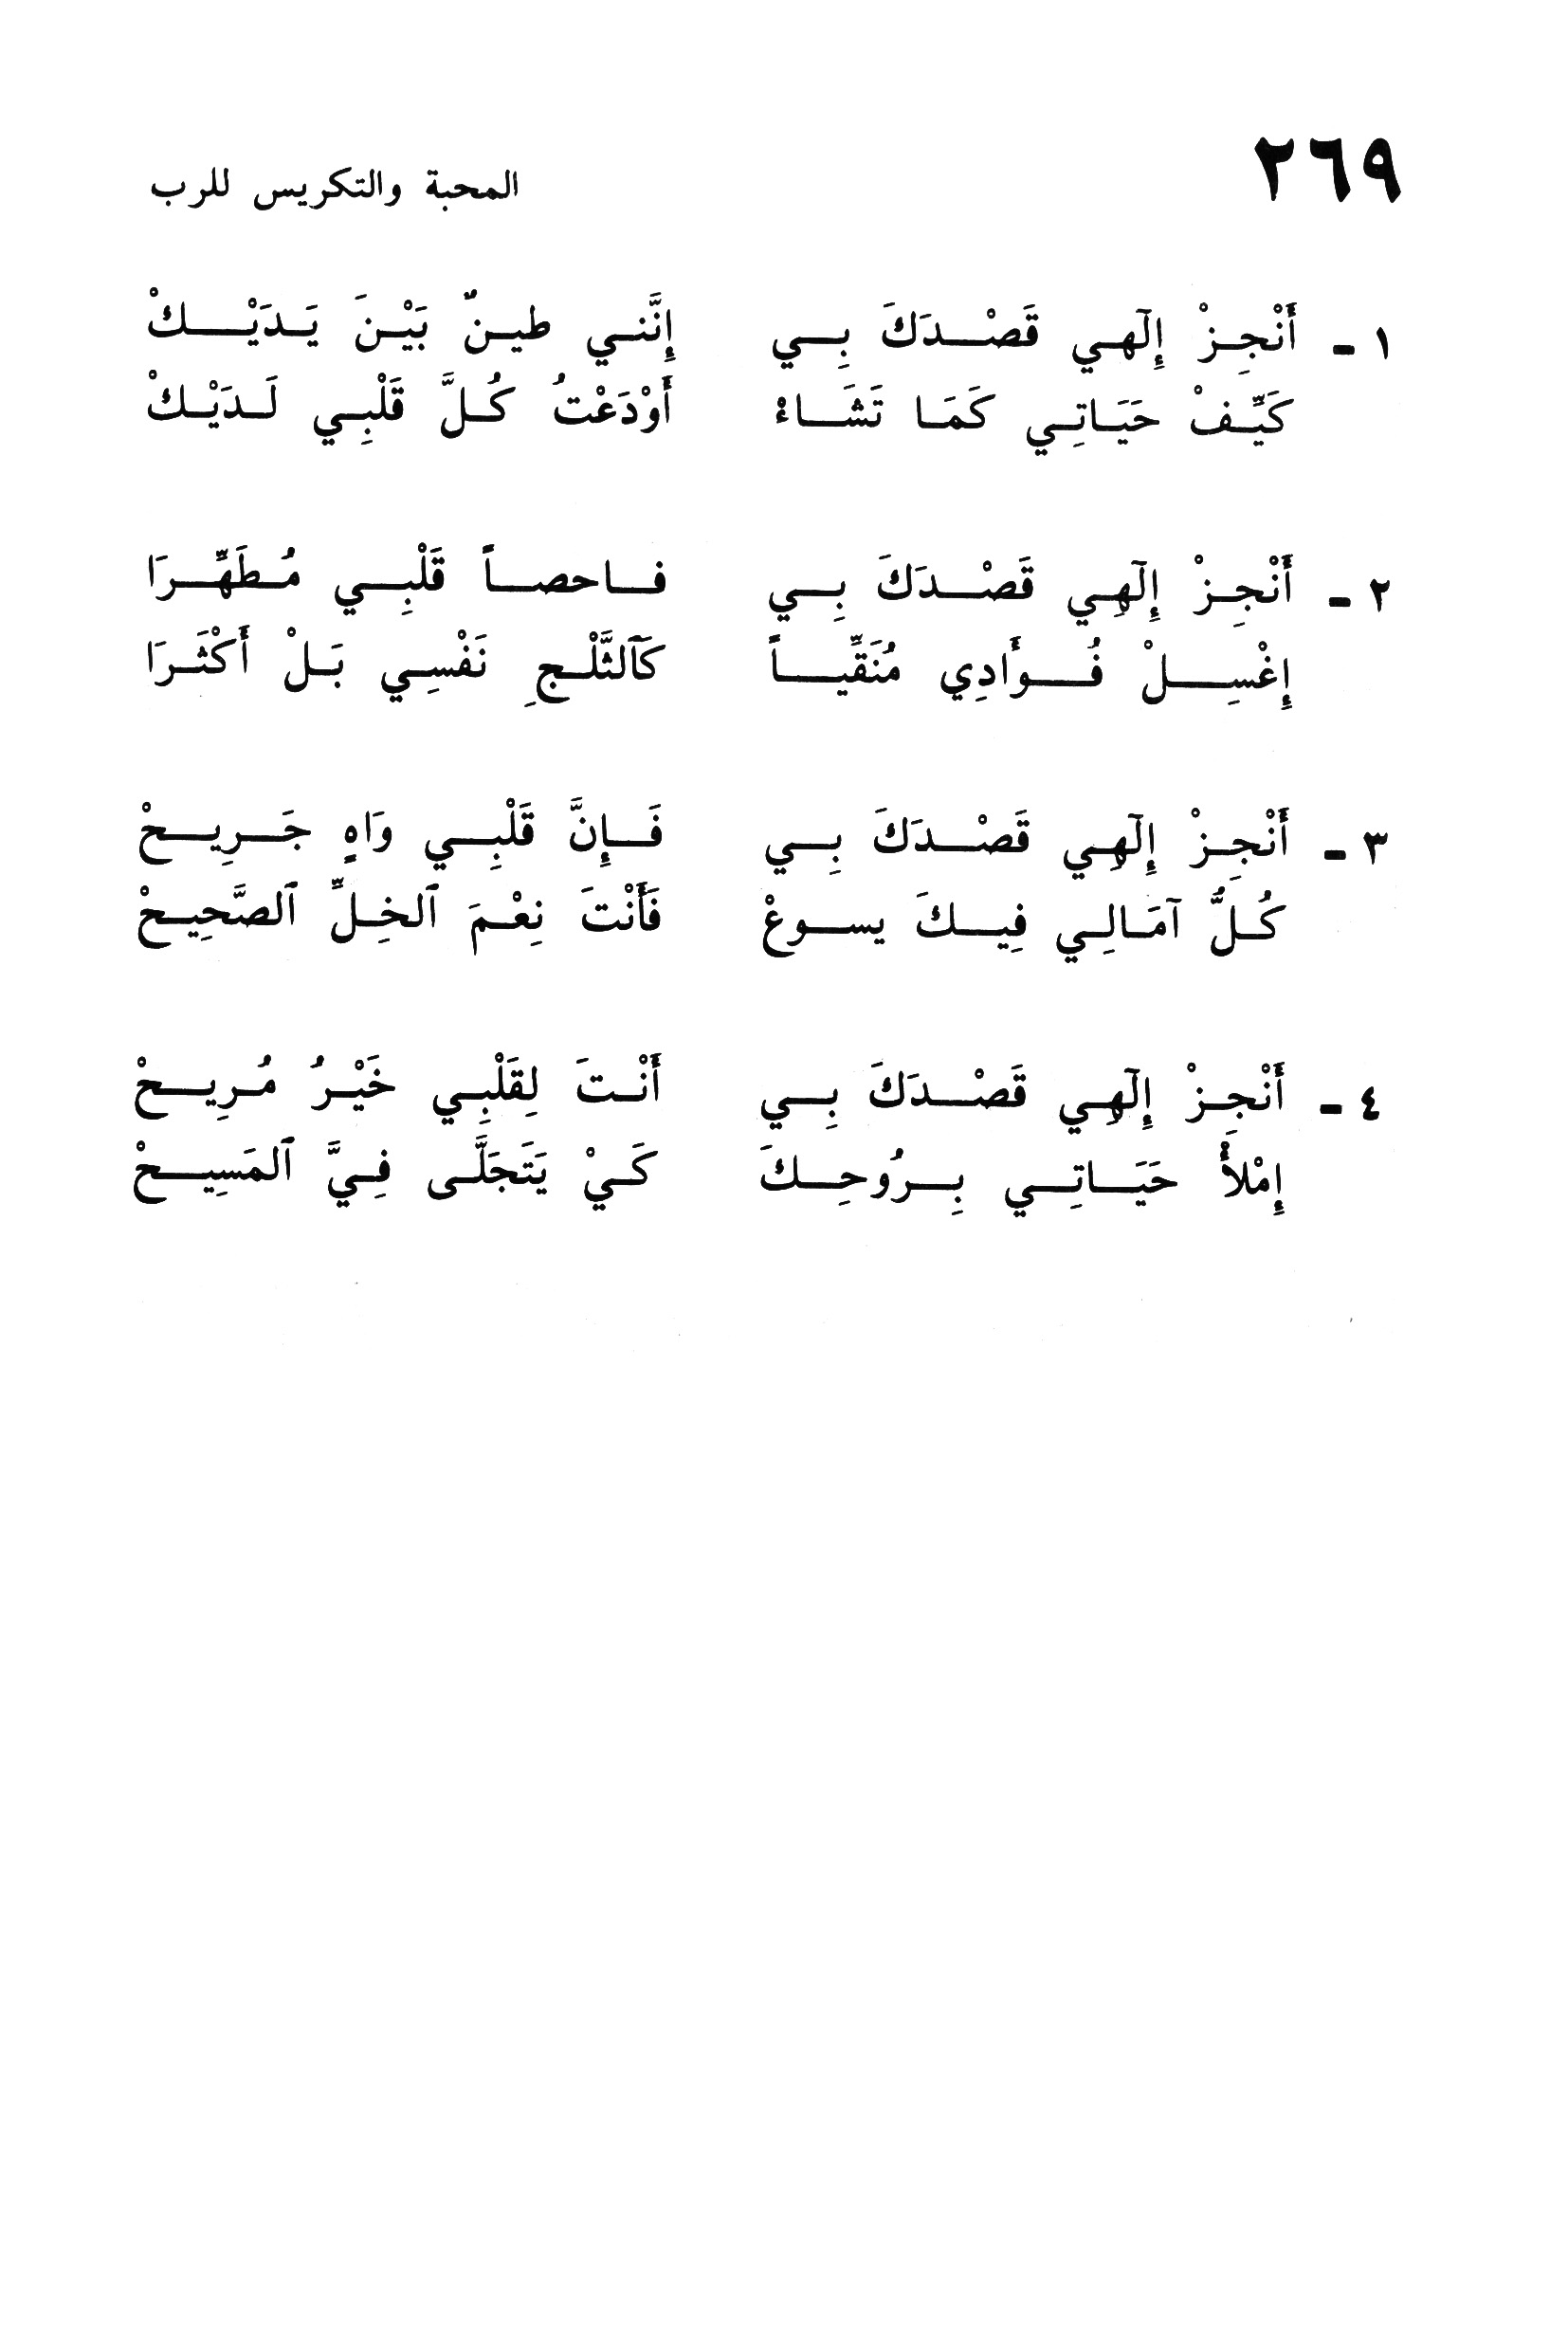 ٢٦٩ المحبة والتكريس للرب
١ - أَنْجِزْ إِلٓهِي قَصْدَكَ بِي إِنَّني طينٌ بَيْنَ يَدَيْكْ
كَيِّفْ حَيَاتِي كَمَا تَشَاءْ أَوْدَعْتُ كُلَّ قَلْبِي لَدَيْكْ
٢ - أَنْجِزْ إِلٓهِي قَصْدَكَ بِي فاحصاً قَلْبِي مُطَهِّرَا
إِغْسِلْ فُؤَادِي مُنَقِّياً كَٱلثَّلْجِ نَفْسِي بَلْ أَكْثَرَا
٣ - أَنْجِزْ إِلٓهِي قَصْدَكَ بِي فَإِنَّ قَلْبِي وَاهٍ جَرِيحْ
كُلُّ آمَالِي فِيكَ يسوعْ فَأَنْتَ نِعْمَ ٱلخِلِّ ٱلصَّحِيحْ
٤ - أَنْجِزْ إِلٓهِي قَصْدَكَ بِي أَنْتَ لِقَلْبِي خَيْرُ مُرِيحْ
إِمْلأْ حَيَاتِي بِرُوحِكَ كَيْ يَتَجَلَّى فِيَّ ٱلمَسِيحْ